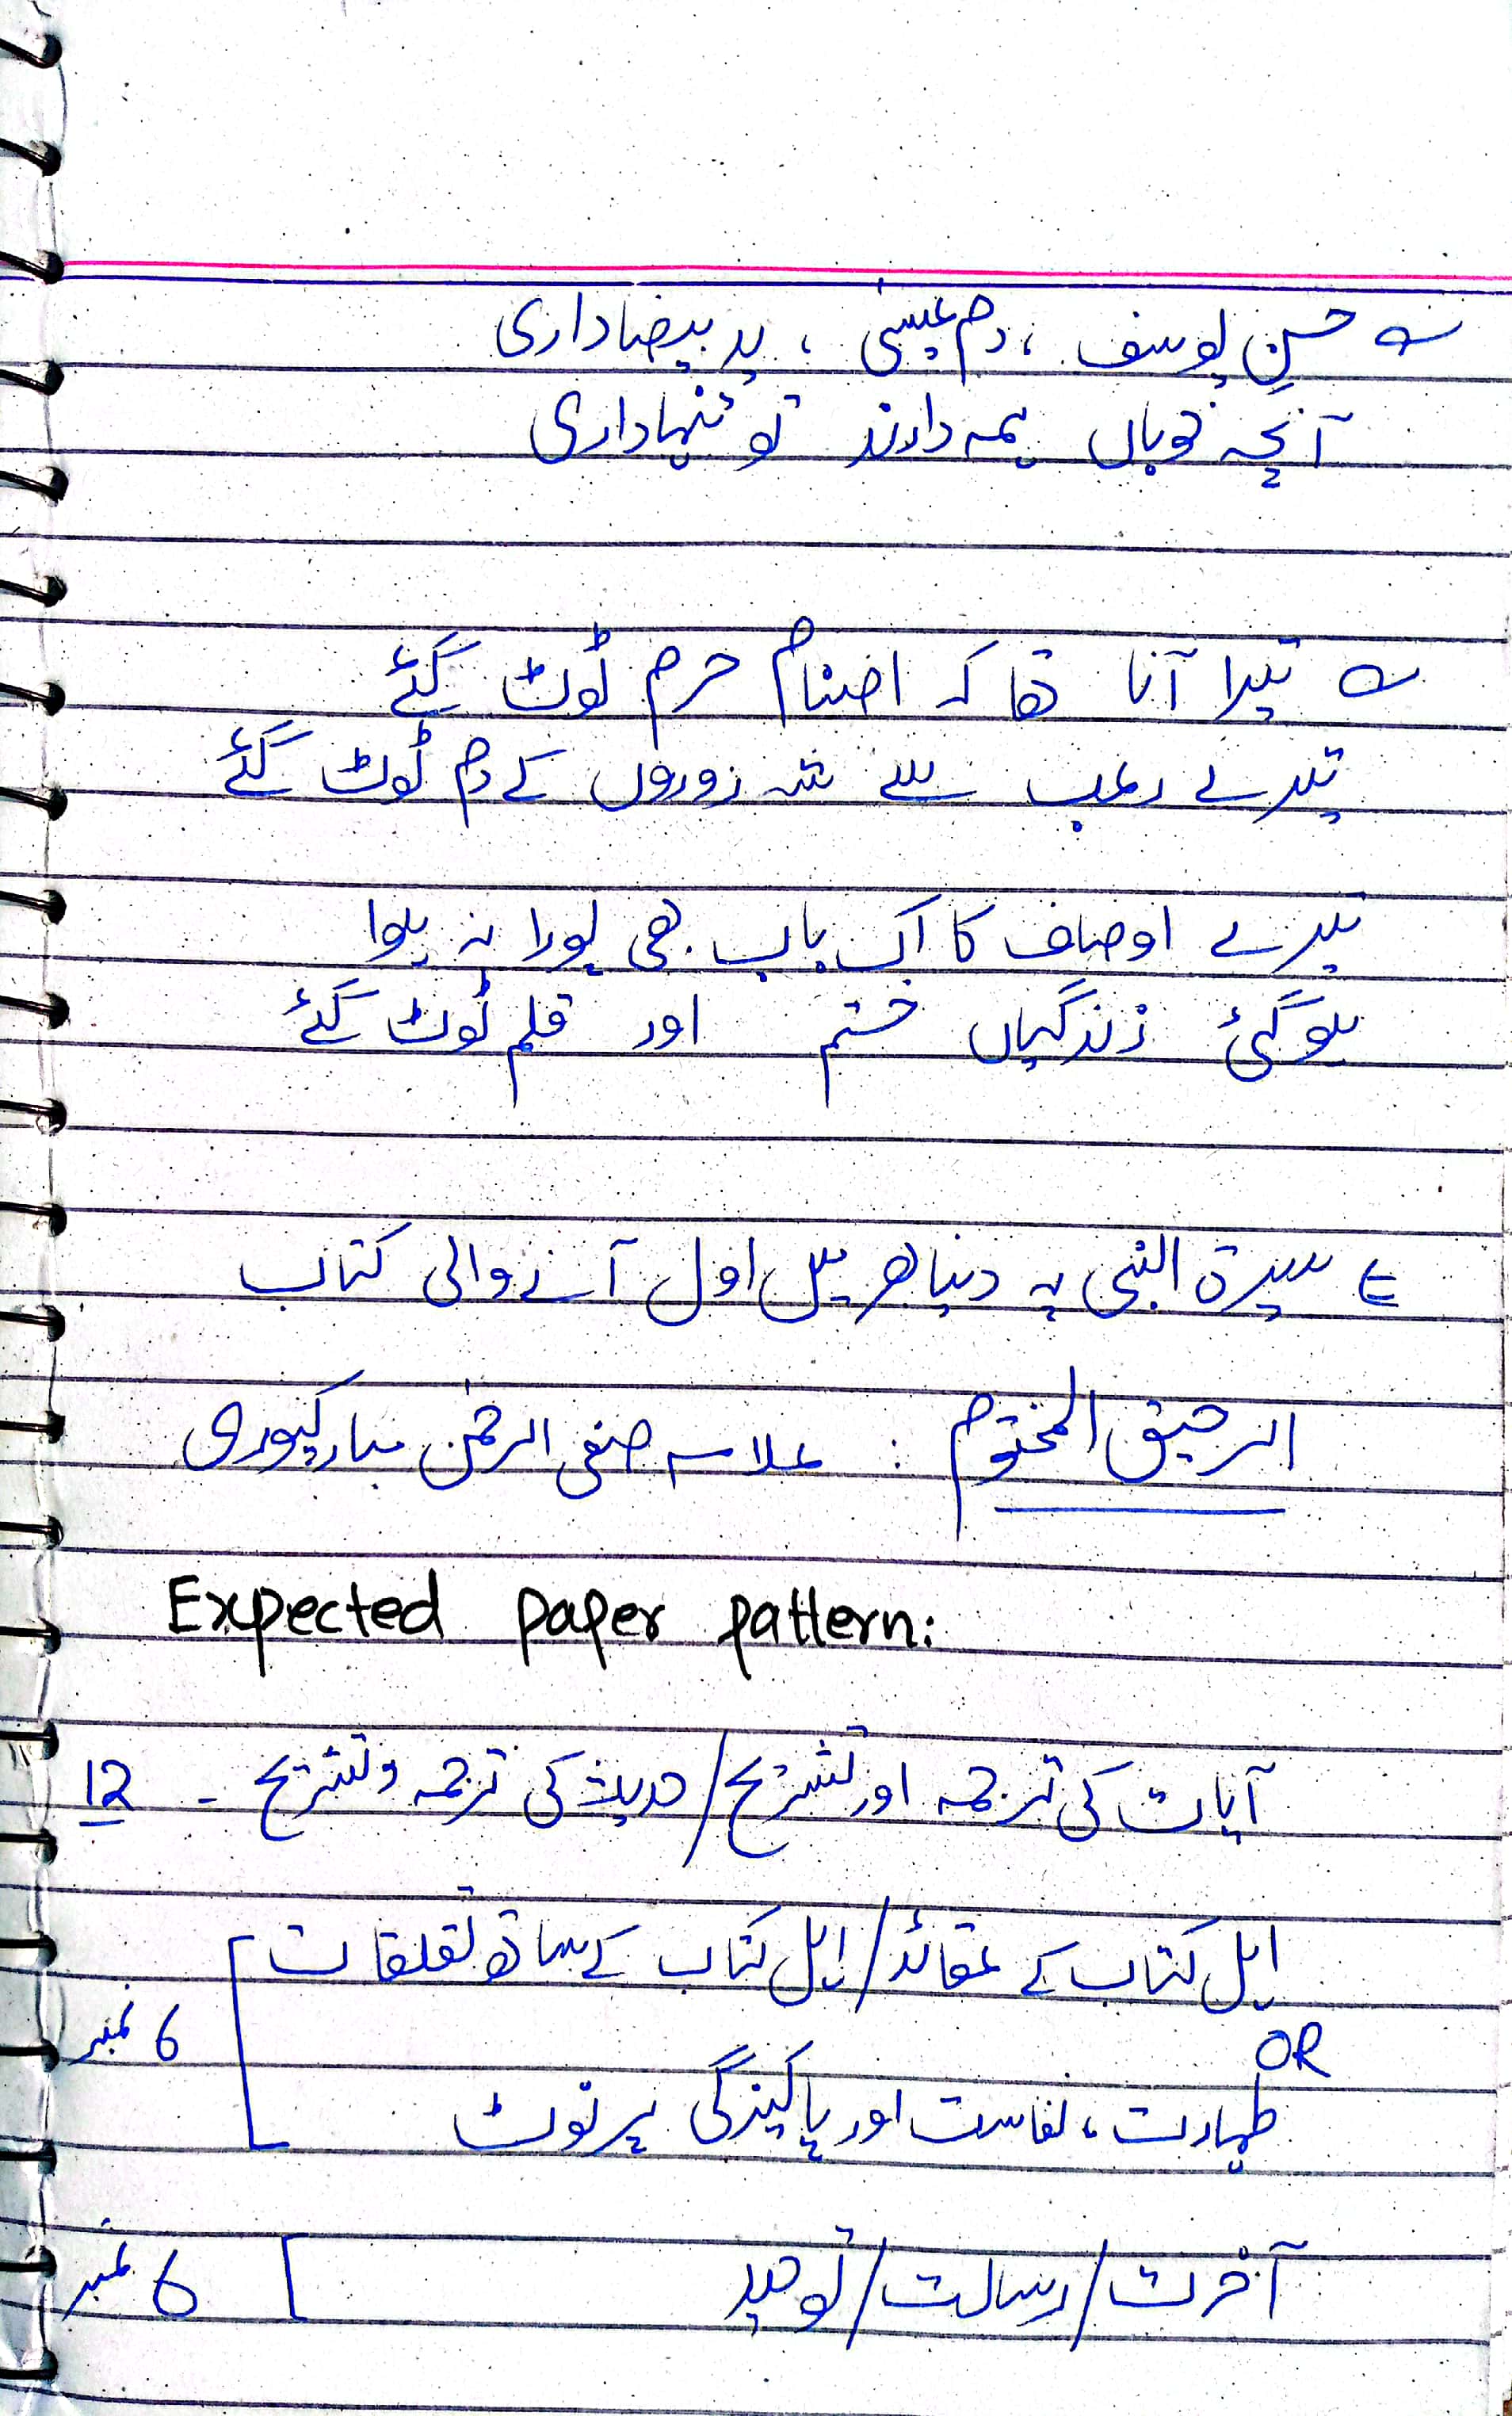 ؎ حسنِ یوسف ، دم عیسیٰ ، ید بیضاداری
آنچہ خوباں ہمہ دارند تو تنہاداری
؎ تیرا آنا تھا کہ اصنام حرم ٹوٹ گئے
تیرے رعب سے شہ زوروں کے دم ٹوٹ گئے
تیرے اوصاف کا اک باب بھی پورا نہ ہوا
ہوگئی زندگیاں ختم اور قلم ٹوٹ گئے
سیرۃ النبی پہ دنیا بھر میں اول آنے والی کتاب
الرحیق المختوم : علامہ صفی الرحمٰن مبارکپوری
Expected paper pattern:
آیات کی ترجمہ اور تشریح/حدیث کی ترجمہ و تشریح - 12
اہل کتاب کے عقائد/اہل کتاب کے ساتھ تعلقات
OR
6 نمبر
طہارت، نفاست اور پاکیزگی پر نوٹ
آخرت/رسالت/توحید 6 نمبر